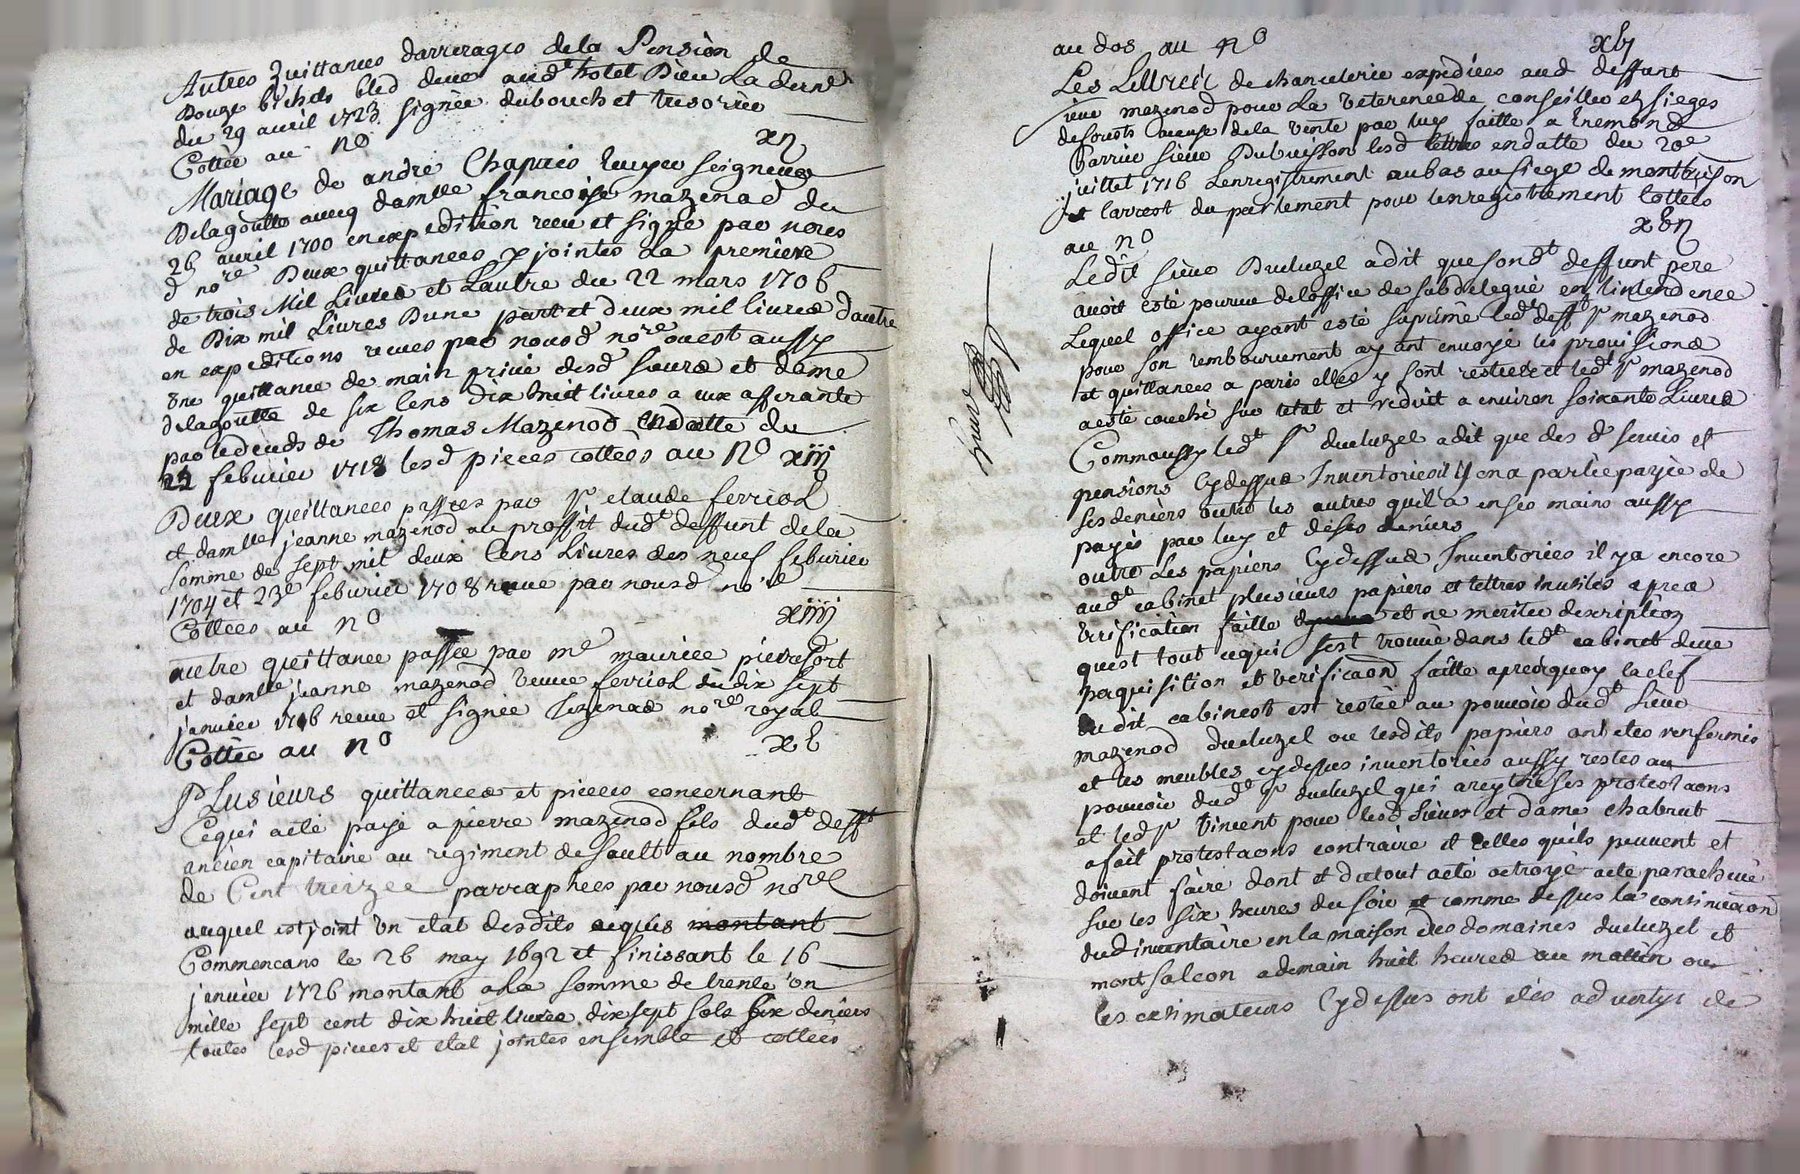 Autres Quittances darrerages dela Pension de
Douze bichets bled deues aud.t hotel Dieu La dern.e
du 29 avril 1723 signée dubouchet tresorier
Cottée au n.o xij
Mariage de andré Chapuis Ecuyer seigneur
Delagoutte avecq dam.lle francoise mazenod du
26 avril 1700 en expedition receu et signé par nous
d no.re Deux quittances y jointes La premiere
de trois Mil Livres et Lautre du 22 mars 1706
de Dix mil Livres Dune part et deux mil livres dautre
en expeditions receues par nousd no.re ou est aussy
une quittance de main privée desd sieurs et dame
delagoutte de six Cens dix huit livres a eux afferante
par le deceds de Thomas Mazenod en datte du
22 febvrier 1718 lesd pieces cottées au N.o xiij
Deux quittances passées par s.r claude ferriol
et dam.lle jeanne mazenod au proffit dud.t deffunt de la
somme de sept mil deux Cens Livres des neuf febvrier
1704 et 23.e febvrier 1708 receue par nousd no.re
Cottées au N.o xiiij
autre quittance passée par m.e maurice pierrefort
et dam.lle jeanne mazenod veuve ferriol du dix sept
janvier 1716 receue et signée Tezenas no.re royal
Cottée au n.o xv
Plusieurs quittances et pieces concernant
Cequi a eté payé a pierre mazenod fils dud.t deff.t
ancien capitaine au regiment de sault au nombre
de Cent treize parraphées par nousd no.re
auquel est joint un etat desdits acquis montant
Commencans le 26 may 1692 et finissant le 16
janvier 1726 montant a la somme de trente un
mille sept cent dix huit livres dix sept sols six deniers
toutes lesd pieces et etat jointes ensemble et cottées
au dos au n.o xvj
Les Lettres de chancelerie expediées aud deffunt
sieur mazenod pour La veterence de conseiller es sieges
de forests cause de la vente par luy faitte a
sieur Dubuisson lesd lettres en datte du 20.e
juillet 1716 Lenregistrement au bas au siege de montbrison
et larrest du parlement pour lenregistrement Cottées
au N.o xvij
Ledit sieur Ducluzel a dit que sond.t deffunt pere
avoit esté pourvu deloffice de subdelegué en lintendence
Lequel office ayant esté suprimé led.t deff.t s.r mazenod
pour son remboursement ayant envoyé les provisions
et quittances a paris elles y sont restées et led.t s.r mazenod
a esté couché sur letat et reduit a environ soixante Livres
Comm aussy led.t s.r ducluzel a dit que des d.
pensions Cy dessus Inventoriées il en a partie payée de
ses deniers outre les autres quil a en ses mains aussy
payés par luy et de ses deniers
outre Les papiers Cy dessus Inventoriés il y a encore
aud.t cabinet plusieurs papiers et lettres inutiles apres
verification faitte et ne meriter description
quest tout cequi sest trouvé dans led.t cabinet deue
perquisition et verificaon faitte apres quoy la clef
du dit cabinest est restée au pouvoir dud.t sieur
mazenod ducluzel ou lesdits papiers ont etes renfermés
et les meubles cy dessus inventoriés aussy restes au
pouvoir dud.t s.r ducluzel qui a reyteré ses protestaons
et led s.r vincent pour lesd sieur et dame chabrut
a fait protestaons contraire et telles quils peuvent et
doivent faire dont et du tout a eté octroyé acte parachevé
sur les six heures du soir et comme dessus la continuaon
dud inventaire en la maison des domaines ducluzel et
montsalcon a demain huit heures du mattin ou
les estimateurs Cy dessus ont etés advertys de